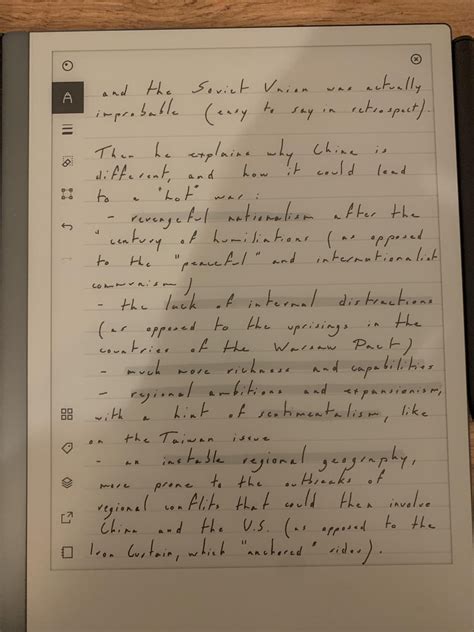 and the Soviet Union was actually
improbable (easy to say in retrospect).
Then he explains why China is
different, and how it could lead
to a "hot" war :
- revengeful nationalism after the
"century of humiliations (as opposed
to the "peaceful" and internationalist
communism)
- the lack of internal distractions
(as opposed to the uprisings in the
countries of the Warsaw Pact)
- much more richness and capabilities
- regional ambitions and expansionism,
with a hint of sentimentalism, like
on the Taiwan issue
- an instable regional geography,
more prone to the outbreaks of
regional conflits that could then involve
China and the U.S. (as opposed to the
Iron Curtain, which "anchored" sides).